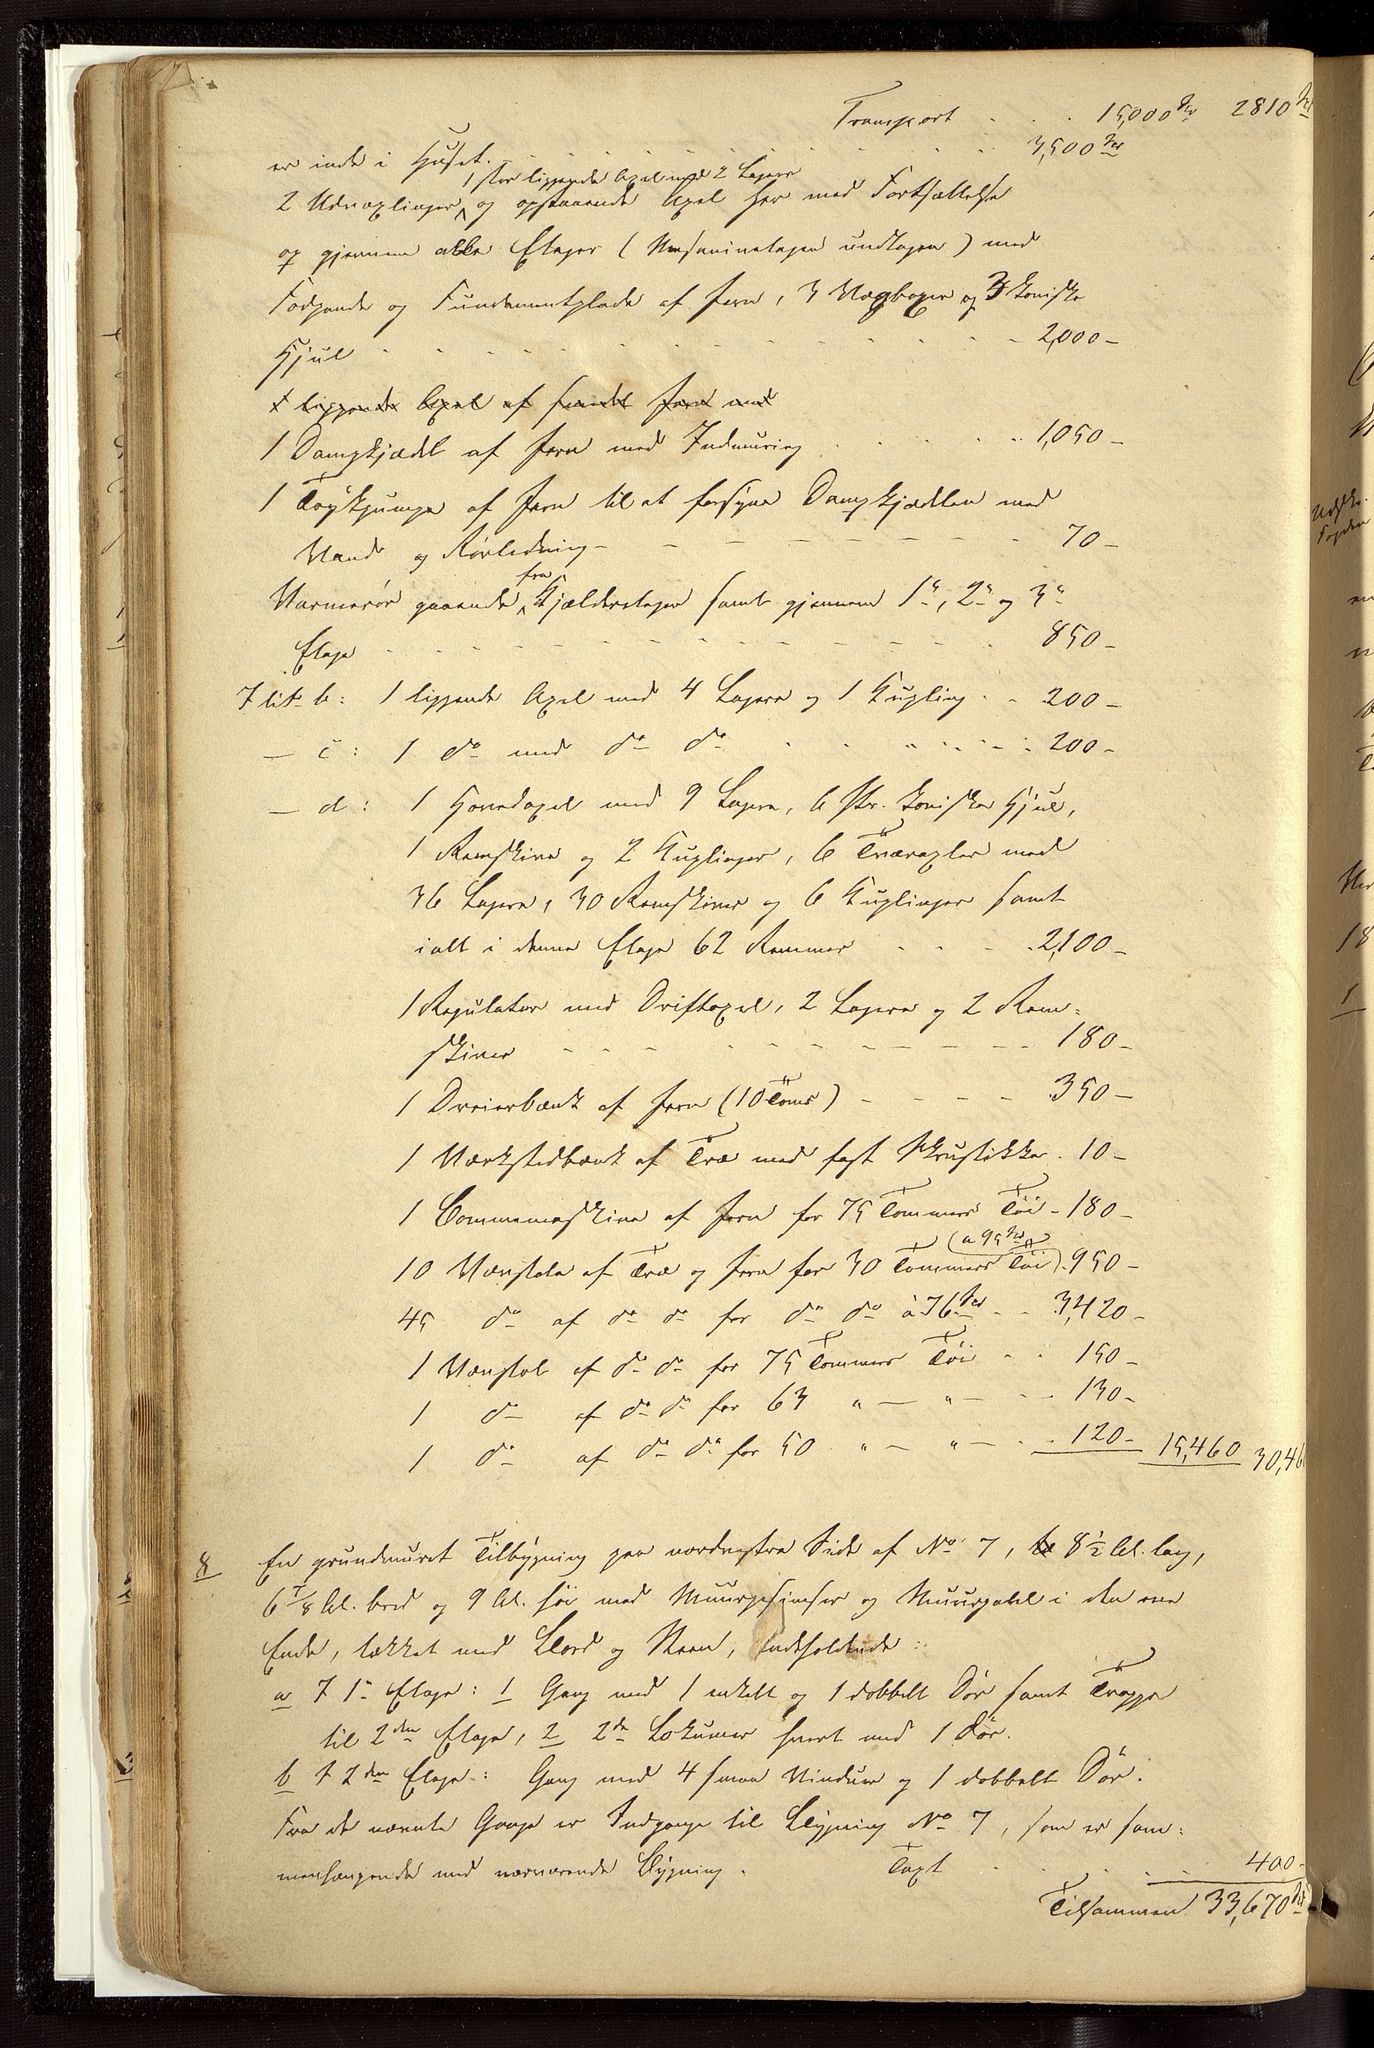 Transport . . . 15,000 Spd 2810 Spd
er inde i Huset. . . . . . . . . . 3,500 Spd
, stor liggende Axel med 2 Lagere
2 Udvexlinger og opstaaende Axel her med Fortsættelse
op gjennem alle Etager (Mesaninetagen undtagen) med
Fodpande og Fundamentplade af Jern, 3 Vægboger og 3 koniske
Hjul . . . . . . . . . . 2,000 –
1 liggende Axel af smedet Jern med
1 Dampkjædel af Jern med Indmuring . . . . . 1,050 –
1 Trykpumpe af Jern til at forsyne Dampkjædelen med
Vand og Rørledning – – – – – – – 70 –
fra
Varmerør gaaende Kjælderetagen samt gjennem 1ste, 2den og 3die
Etage . . . . . . . . . . 850 –
I lit. b: 1 liggende Axel med 4 Lagere og 1 Kupling . . 200 –
— c: 1 do med do do . . . . . . 200 –
— d: 1 Hovedaxel med 9 Lagere, 6 Par koniske Hjul,
1 Remskive og 2 Kuplinger, 6 Tværaxler med
36 Lagere, 30 Remskiver og 6 Kuplinger samt
ialt i denne Etage 62 Remmer . . . . 2,100 –
1 Regulator med Driftaxel, 2 Lagere og 2 Rem-
skiver . . . . . . . . . 180 –
1 Dreierbænk af Jern (10 Toms) – – – – 350 –
1 Værkstedbænk af Træ med fast Skrustikke . 10 –
1 Bommemaskine af Jern for 75 Tommers Tøi – 180 –
(a 95 Spd)
10 Vævstole af Træ og Jern for 30 Tommers Tøi . 950 –
45 do af do do for do do à 76 Spd . . 3,420 –
1 Vævstol af do do for 75 Tommers Tøi . . 150 –
1 do af do do for 63 " — " — . . 130 –
1 do af do do for 50 " — " — . . 120 – 15,460 30,46
8 En grundmuret Tilbygning paa nordvestre Side af No 7, 8½ Al. lang,
6 7/8 Al. bred og 9 Al. høi med Muurgesimser og Muurgavl i den ene
Ende, tækket med Bord og Steen, indholdende:
a I 1ste Etage: 1 Gang med 1 enkelt og 1 dobbelt Dør samt Trappe
til 2den Etage, 2 2de Lokumer hvert med 1 Dør.
b I 2den Etage: Gang med 4 smaa Vinduer og 1 dobbelt Dør.
Fra de nævnte Gange er Indgange til Bygning No 7, som er sam-
menhængende med nærværende Bygning. Taxt . . . . . 400 –
Tilsammen 33,670 Spd